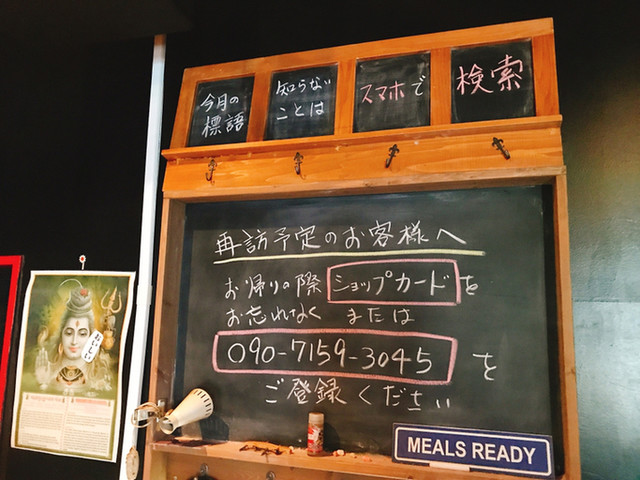 今月の
標語
知らない
ことは
スマホで
検索
再訪予定のお客様へ
お帰りの際ショップカードを
お忘れなく または
090-7159-3045を
ご登録ください
MEALS READY
おいしい